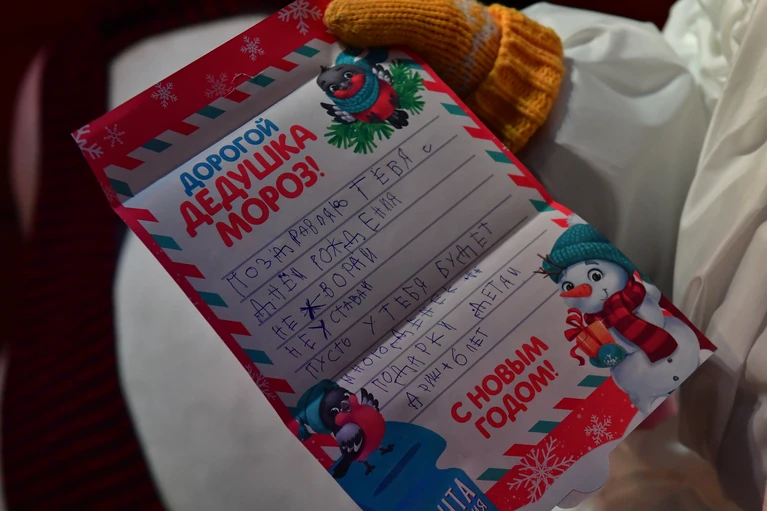 ДОРОГОЙ
ДЕДУШКА
МОРОЗ!
ПОЗДРАВЛЯЮ ТЕБЯ с
ДНЁМ РОЖДЕНИЯ
НЕ ХВОРАЙ
НЕ УСТАВАЙ
ПУСТЬ У ТЕБЯ БУДЕТ
МНОГО ДЕНЕК НА
ПОДАРКИ ДЕТАМ
АРИША 6 ЛЕТ
С НОВЫМ
ГОДОМ!